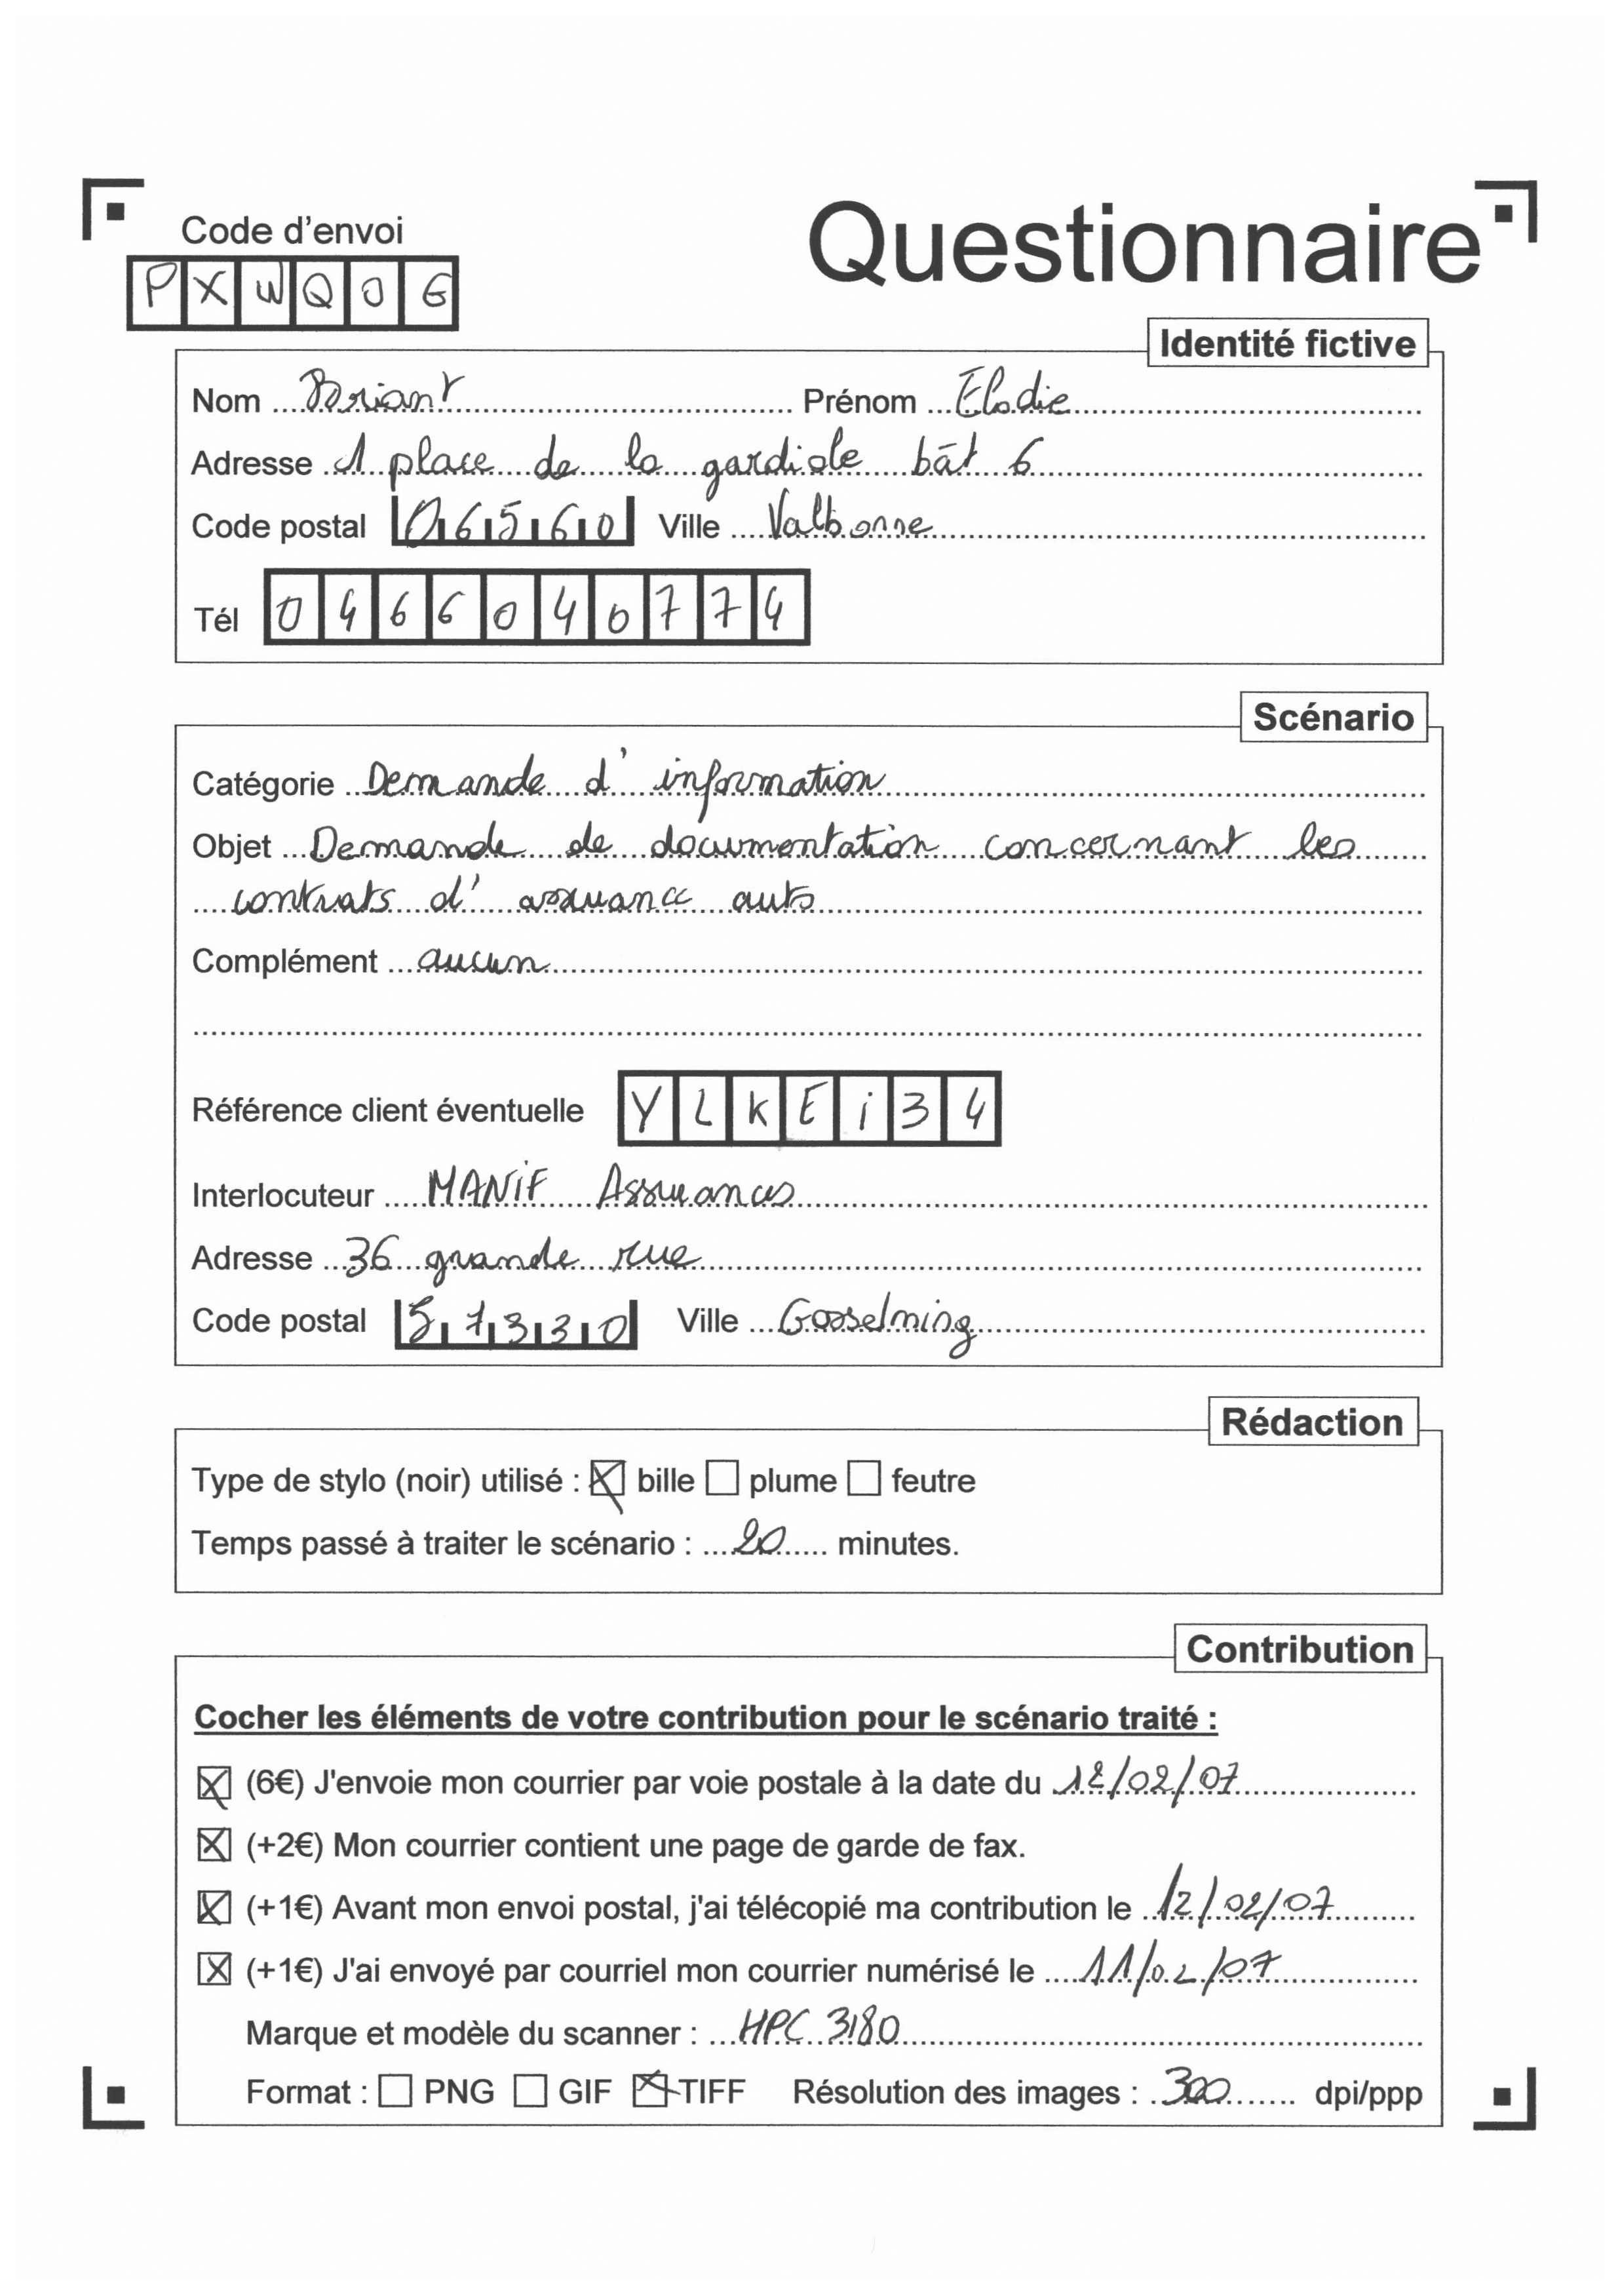 Code d'envoi
Questionnaire
PXWQOG
Identité fictive
Nom Briant Prénom Elodie
Adresse 1 place de la gardiole bât 6
Code postal 06560 Ville Valbonne
Tél 0466040774
Scénario
Catégorie Demande d'information
Objet Demande de documentation concernant les
contrats d'assurance auto
Complément aucun
Référence client éventuelle YLKEi34
Interlocuteur MANiF Assurances
Adresse 36 grande rue
Code postal 57330 Ville Gosselming
Rédaction
Type de stylo (noir) utilisé : ☒ bille ☐ plume ☐ feutre
Temps passé à traiter le scénario : 20 minutes.
Contribution
Cocher les éléments de votre contribution pour le scénario traité :
☒ (6€) J'envoie mon courrier par voie postale à la date du 12/02/07
☒ (+2€) Mon courrier contient une page de garde de fax.
☒ (+1€) Avant mon envoi postal, j'ai télécopié ma contribution le 12/02/07
☒ (+1€) J'ai envoyé par courriel mon courrier numérisé le 11/02/07
Marque et modèle du scanner : HPC 3180
Format : ☐ PNG ☐ GIF ☒ TIFF Résolution des images : 300 dpi/ppp